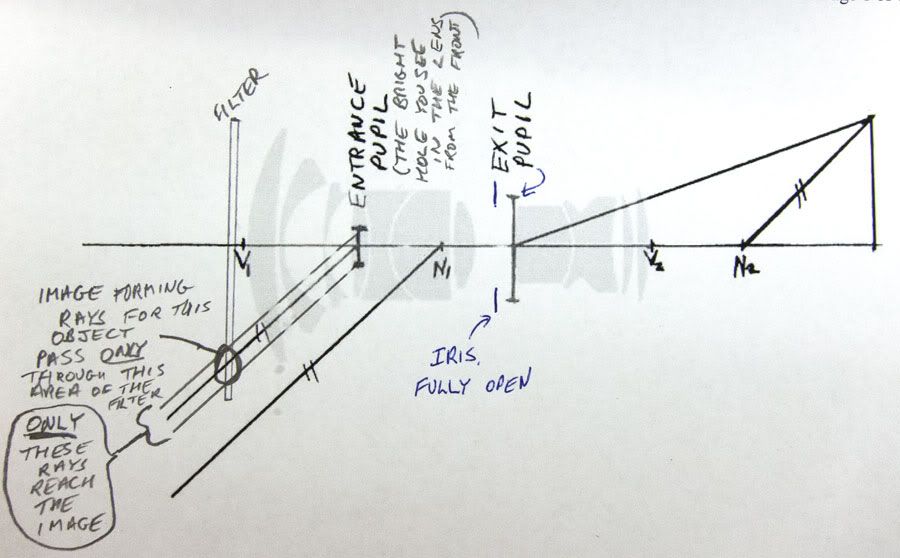 FILTER
ENTRANCE
PUPIL
(THE BRIGHT
HOLE YOU SEE
IN THE LENS
FROM THE FRONT)
EXIT
PUPIL
V1
N1
V2
N2
IMAGE FORMING
RAYS FOR THIS
OBJECT
PASS ONLY
THROUGH THIS
AREA OF THE
FILTER
ONLY
THESE
RAYS
REACH
THE
IMAGE
IRIS,
FULLY OPEN